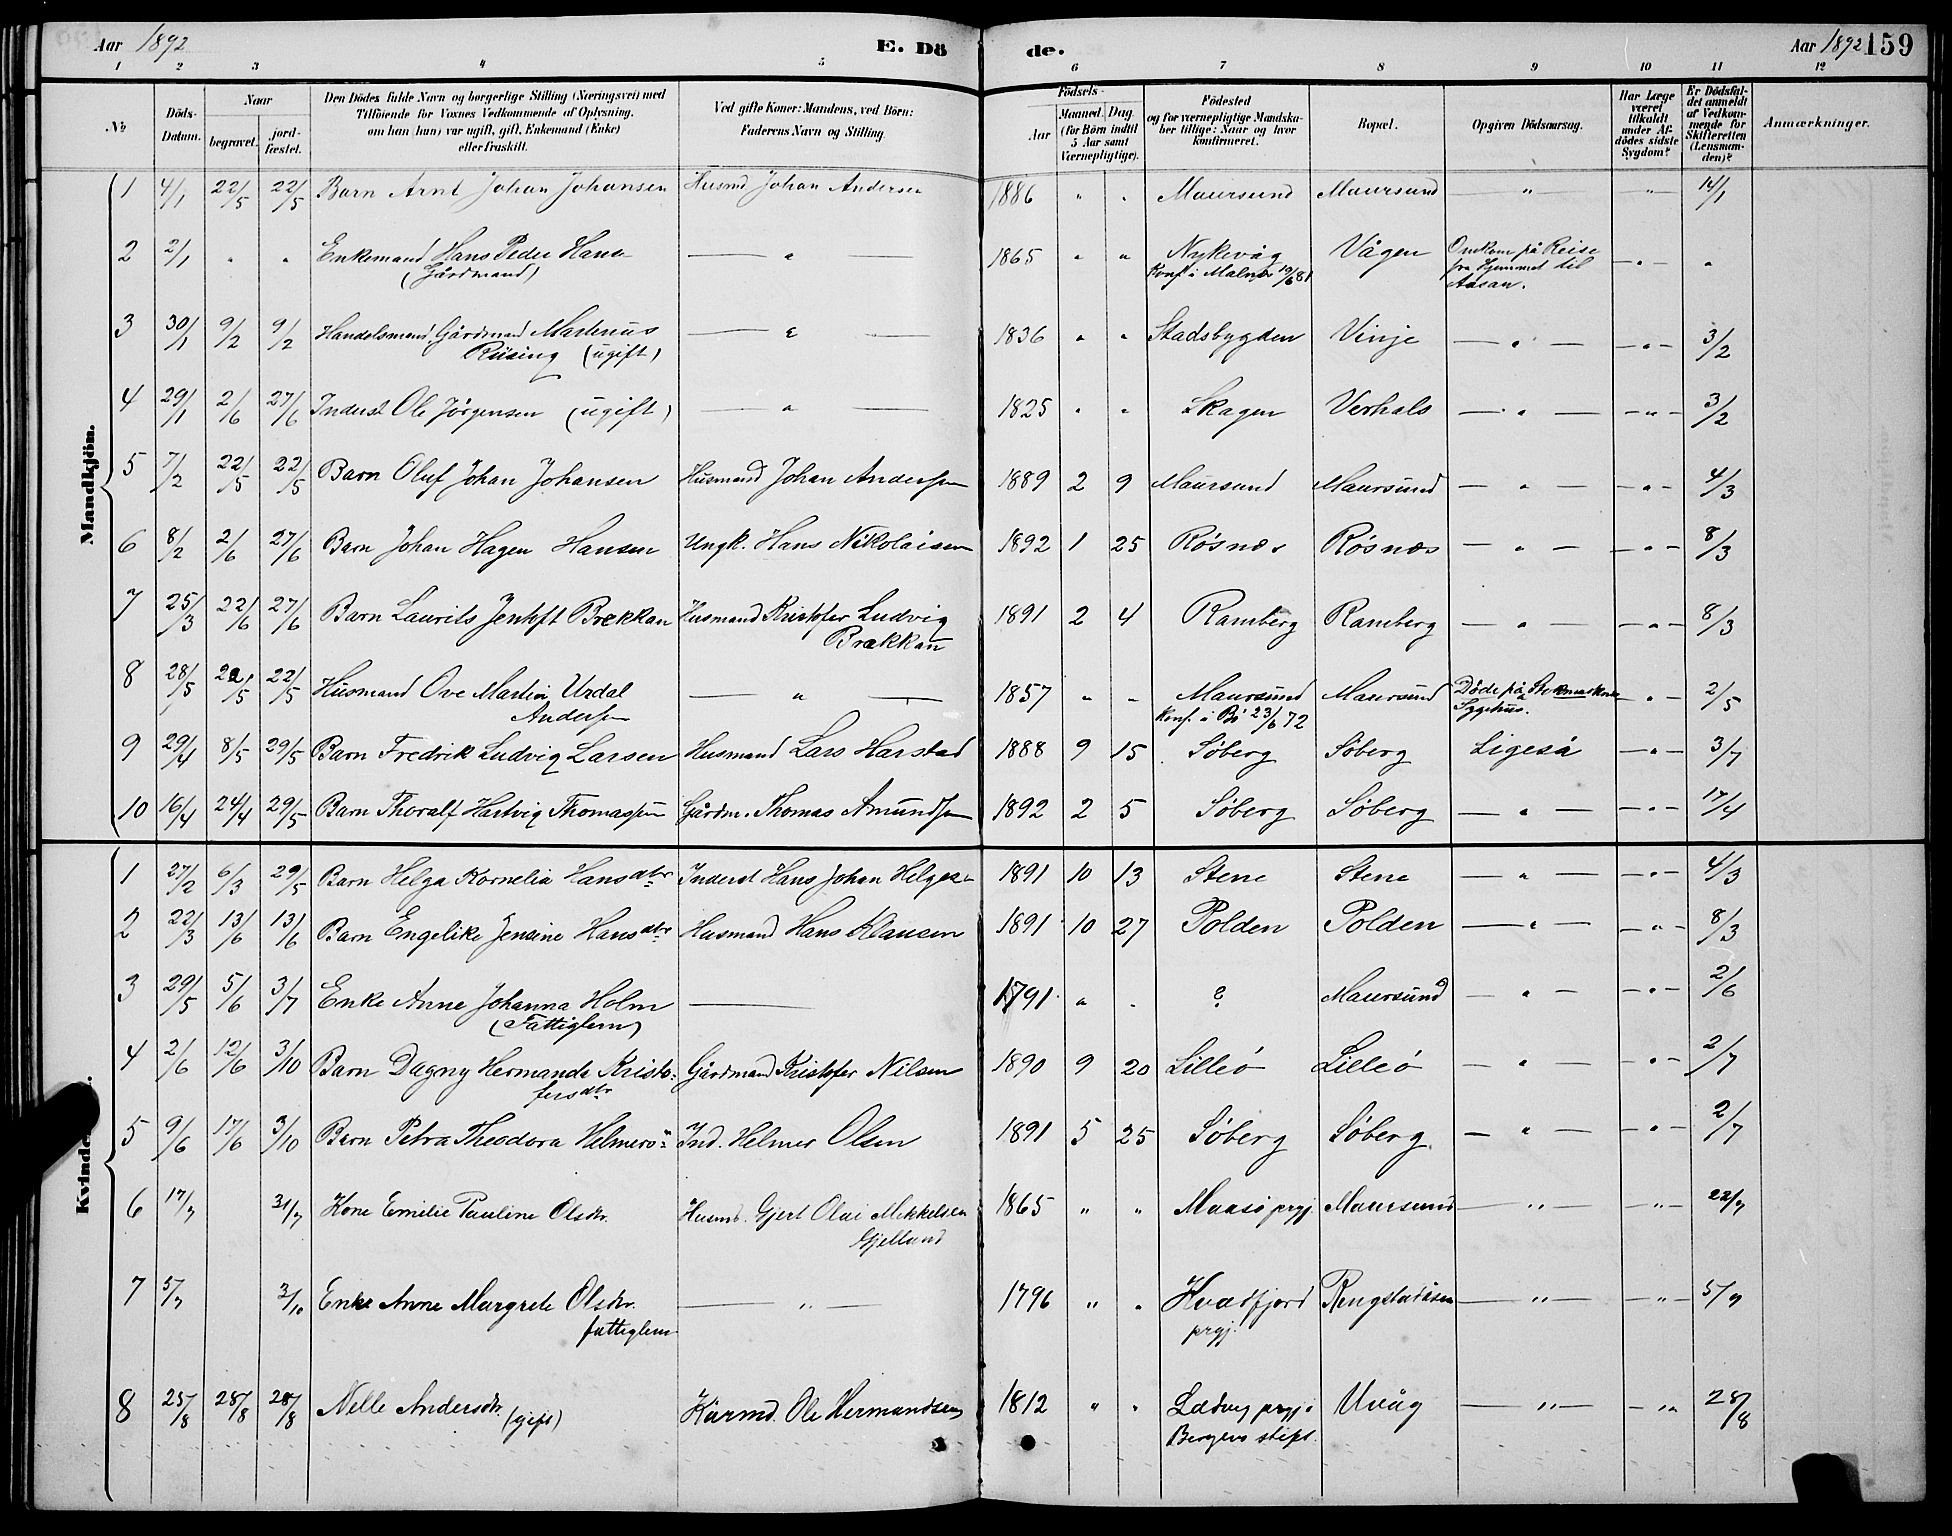 Aar 1892 E. Dö de. Aar 1892 159
1 2 3 4 5 6 7 8 9 10 11 12
№ Döds-Datum. Naar begravet. jord-fæstet. Den Dödes fulde Navn og borgerlige Stilling (Næringsvei) med Tilföiende for Voxnes Vedkommende af Oplysning, om han (hun) var ugift, gift, Enkemand (Enke) eller fraskilt. Ved gifte Koner: Mandens, ved Börn: Faderens Navn og Stilling. Födsels- Aar Maaned. Dag. (for Börn indtil 5 Aar samt Værnepligtige). Födested og for værnepligtige Mandskaber tillige: Naar og hvor konfirmeret. Bopæl. Opgiven Dödsaarsag. Har Læge været tilkaldt under Afdödes sidste Sygdom? Er Dödsfaldet anmeldt af Vedkommende for Skifteretten (Lensmanden)? Anmærkninger.
Mandkjön.
1 4/1 22/5 22/5 Barn Arnt Johan Johansen Husmd Johan Andersen 1886 " " Maursund Maursund " " 14/1
2 2/1 " " Enkemand Hans Peder Hans (Gårdmand) — " — 1865 " " Nykvåg Konf. i Malnes 19/6 81 Vågen Omkom på Reise fra Hjemmet til Aasan. — " — "
3 30/1 9/2 9/2 Handelsmand, Gårdmand Martinus Riising (ugift) — " — 1836 " " Stadsbygden Vinje — " — — " — 3/2
4 29/1 2/6 27/6 Inderst Ole Jørgensen (ugift) — " — 1825 " " Skagen Verhals — " — — " — 3/2
5 7/2 22/5 22/5 Barn Oluf Johan Johansen Husmand Johan Andersen 1889 2 9 Maursund Maursund — " — — " — 4/3
6 8/2 2/6 27/6 Barn Johan Hagen Hansen Ungk. Hans Nikolaisen 1892 1 25 Røsnes Røsnes — " — — " — 8/3
7 25/3 22/6 27/6 Barn Laurits Jentoft Brekkan Husmand Kristofer Ludvig Brækkan 1891 2 4 Ramberg Ramberg — " — — " — 8/3
8 28/5 22/5 22/5 Husmand Ove Martin Urdal Andersen — " — 1857 " " Maursund Konf. i Bø 23/6 72 Maursund Døde på Stokmarknes Sygehus. — " — 2/5
9 29/4 8/5 29/5 Barn Fredrik Ludvig Larsen Husmand Lars Harstad 1888 9 15 Søberg Søberg Ligeså — " — 3/7
10 16/4 24/4 29/5 Barn Thoralf Hartvig Thomassen Gårdm. Thomas Amundsen 1892 2 5 Søberg Søberg — " — — " — 17/4
Kvinde
1 27/2 6/3 29/5 Barn Helga Kornelia Hansdtr Inderst Hans Johan Helges 1891 10 13 Stene Stene — " — — " — 4/3
2 22/3 13/6 13/6 Barn Engelike Jensine Hansdtr Husmand Hans Klausen 1891 10 27 Polden Polden — " — — " — 8/3
3 29/5 5/6 3/7 Enke Anne Johanna Holm (Fattiglem) — 1791 " " ? Maursund — " — — " — 2/6
4 2/6 12/6 3/10 Barn Dagny Hermande Kristofersdtr Gårdmand Kristofer Nilsen 1890 9 20 Lilleø Lilleø — " — — " — 2/7
5 9/6 17/6 3/10 Barn Petra Theodora Helmers Ind. Helmer Olsen 1891 5 25 Søberg Søberg — " — — " — 2/7
6 17/7 31/7 Kone Emilie Pauline Olsdtr. Husmd. Gjert Olai Mikkelsen Gjelland 1865 " " Maasø prgj Maursund — " — — " — 22/7
7 5/7 3/10 Enke Anne Margrete Olsdtr. fattiglem — " — 1796 " " Kvædfjord prgj. Ringstadåsen — " — — " — 5/7
8 25/8 28/8 28/8 Nelle Andersdtr. (gift) Kårmd. Ole Hermandsen 1812 " " Ladvig prgj i Bergens stift. Uvåg — " — — " — 28/8